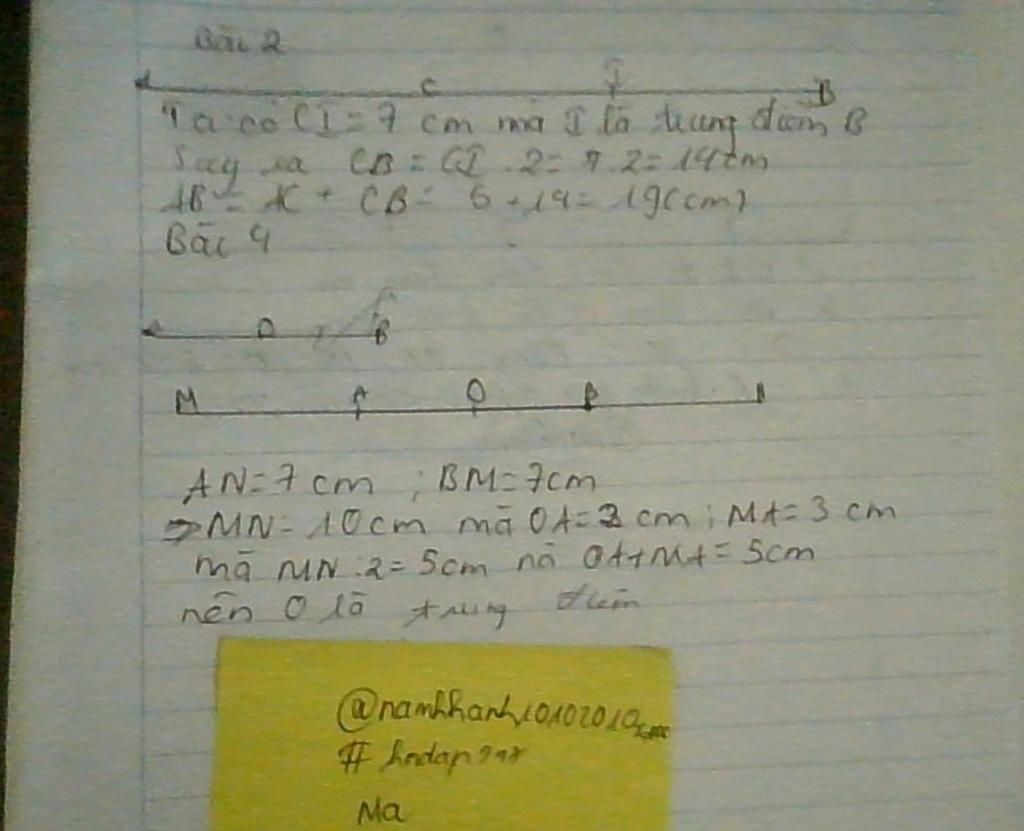 Bài 2
C I B
Ta có CI = 7 cm mà I là trung điểm B
Suy ra CB = CI . 2 = 7 . 2 = 14 cm
AB = AC + CB = 5 + 14 = 19 (cm)
Bài 4
O B
M A O B
AN = 7 cm ; BM = 7 cm
=> MN = 10 cm mà OA = 2 cm ; MA = 3 cm
mà MN : 2 = 5 cm mà OA + MA = 5 cm
nên O là trung điểm
@namkhanh10102010
#
Ma